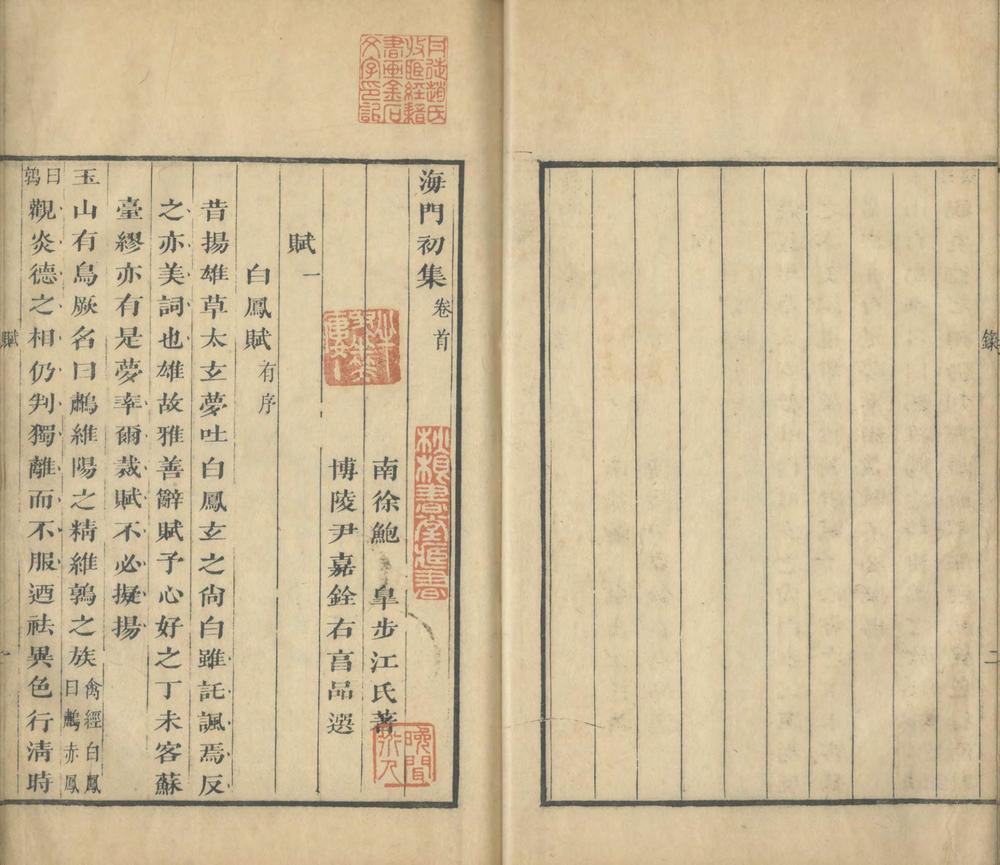 錄
二
丹徒趙氏
收臧經籍
書畫金石
文字印記
海門初集卷首
南徐鮑 皐步江氏著
博陵尹嘉銓右亯品選
賦一
白鳳賦有序
昔揚雄草太玄夢吐白鳳玄之尙白雖託諷焉反
之亦美詞也雄故雅善辭賦子心好之丁未客蘇
臺繆亦有是夢率爾裁賦不必擬揚
玉山有鳥厥名曰鷫維陽之精維鶉之族禽經白鳳曰鷫赤鳳
曰鶉觀炎德之相仍判獨離而不服迺祛異色行淸時
賦
一